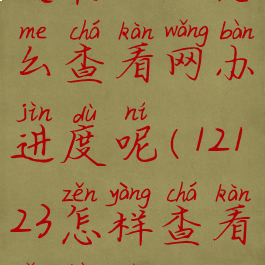 me chá kàn wǎng bàn
么查看网办
jìn dù ní
进度呢(121
zěn yàng chá kàn
23怎样查看